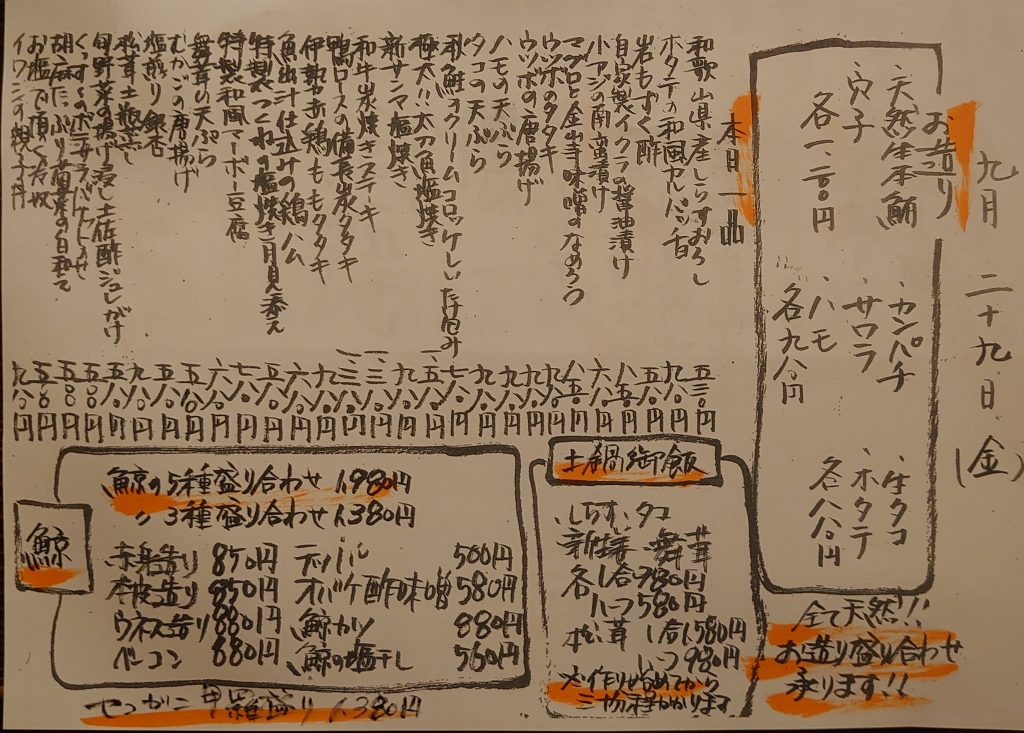 九月 二十九日(金)
お造り
・天然生本鮪
・穴子
各一、二〇〇円
・カンパチ
・サワラ
・ハモ
各九八〇円
・生タコ
・ホタテ
各八八〇円
全て天然!!
お造り盛り合わせ
承ります!!
本日一品
和歌山県産しらすおろし 五三〇円
ホタテの和風カルパッチョ 九八〇円
岩もずく酢 五八〇円
自家製イクラの醤油漬け 八五〇円
小アジの南蛮漬け 六八〇円
マグロと金山寺味噌のなめろう 八五〇円
ウツボのタタキ 九八〇円
ウツボの唐揚げ 九八〇円
ハモの天ぷら 九八〇円
タコの天ぷら 九八〇円
秋鮭のクリームコロッケしいたけ包み 七八〇円
極太!!太刀魚塩焼き 一、五八〇円
新サンマ塩焼き 九八〇円
和牛炭焼きステーキ
鴨ロースの備長炭タタキ
伊勢赤鶏ももタタキ 九八〇円
魚出汁仕込みの鶏ハム 六八〇円
特製つくねの塩焼き月見添え 五八〇円
特製和風マーボー豆腐 七八〇円
舞茸の天ぷら 六八〇円
むかごの唐揚げ 五八〇円
塩煎り銀杏 五八〇円
松茸土瓶蒸し 九八〇円
旬野菜の揚げ浸し土佐酢ジュレがけ
胡麻たっぷり菊菜の白和え 五〇〇円
お塩で頂く冷奴 五五〇円
九八〇円
土鍋御飯
しらす、タコ
新生姜、舞茸
各 1合980円
ハーフ580円
松茸 1合1,580円
ハーフ980円
〆作り始めてから
三十分程かかります
鯨
鯨の5種盛り合わせ 1,980円
〃 3種盛り合わせ 1,380円
赤身造り 850円
本皮造り 850円
ウネス造り 880円
ベーコン 880円
テッパ 500円
オバケ酢味噌 580円
鯨カツ 880円
鯨の塩干し 560円
セコガニ甲羅盛り 1,380円